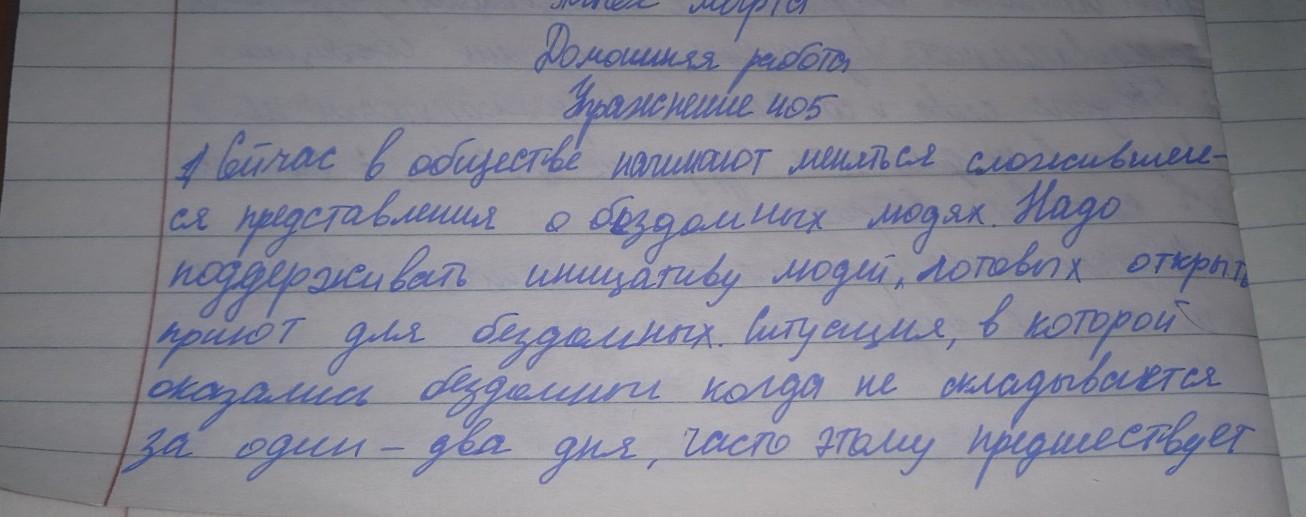 марта
Домашняя работа
Упражнение 405
1 Сейчас в обществе начинают меняться сложившие-
ся представления о бездомных людях. Надо
поддерживать инициативу людей, готовых открыть
приют для бездомных. Ситуация, в которой
оказались бездомные когда не складывается
за один - два дня, часто этому предшествует